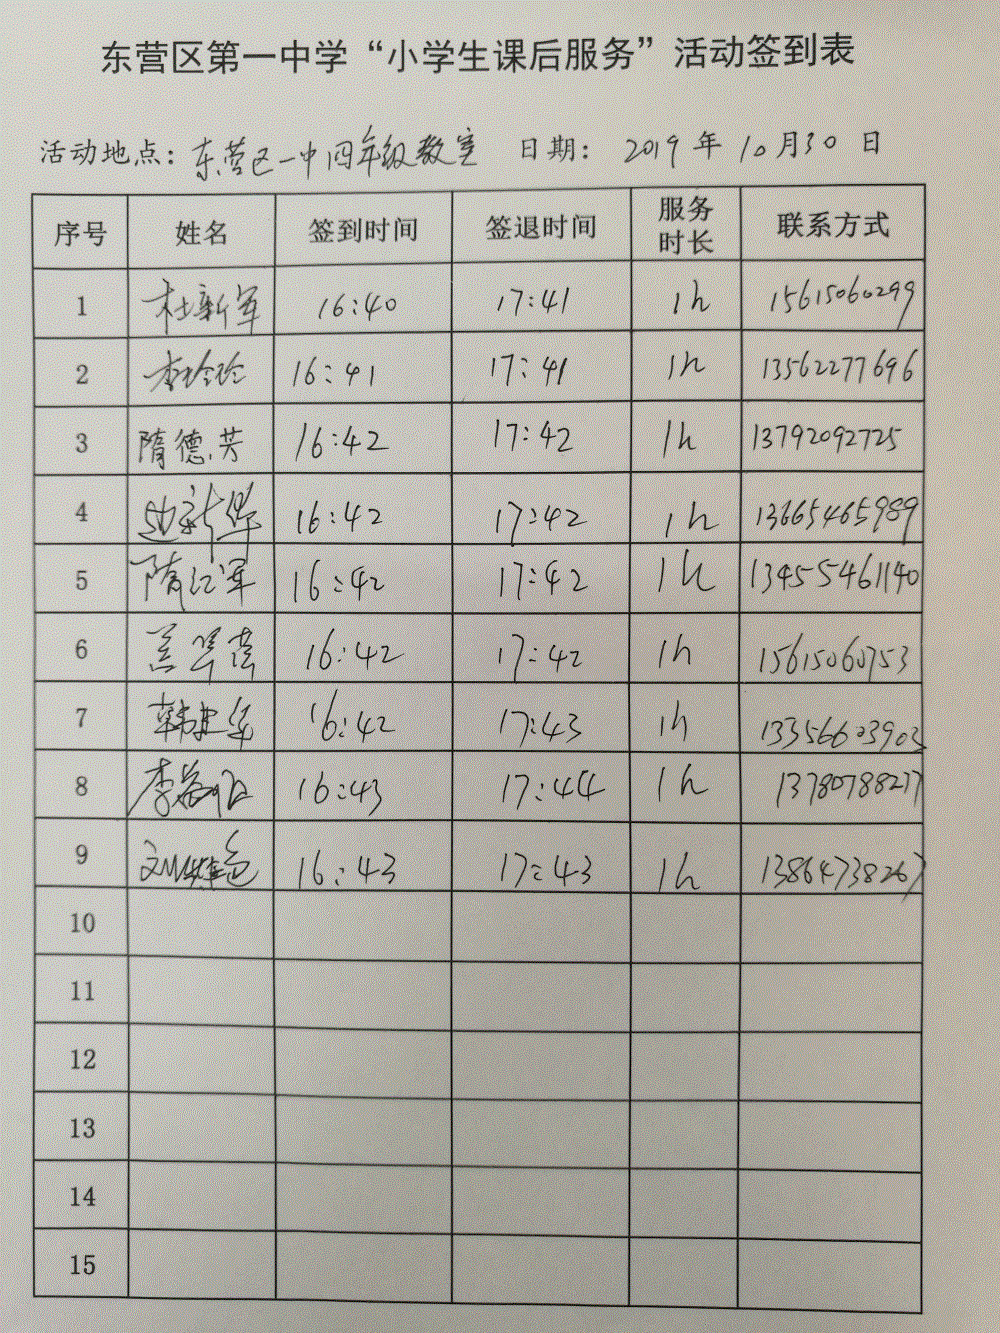 东营区第一中学“小学生课后服务”活动签到表
活动地点：东营区一中四年级教室 日期： 2019 年 10 月 30 日
序号 姓名 签到时间 签退时间 服务时长 联系方式
1 杜新军 16:40 17:41 1h 15615060299
2 李玲玲 16:41 17:41 1h 13562277696
3 隋德芳 16:42 17:42 1h 13792092725
4 16:42 17:42 1h 13665465989
5 隋江军 16:42 17:42 1h 13455461140
6 16:42 17:42 1h 15615060753
7 韩建华 16:42 17:43 1h 13356603903
8 16:43 17:44 1h 13780788277
9 16:43 17:43 1h 13864738267
10
11
12
13
14
15